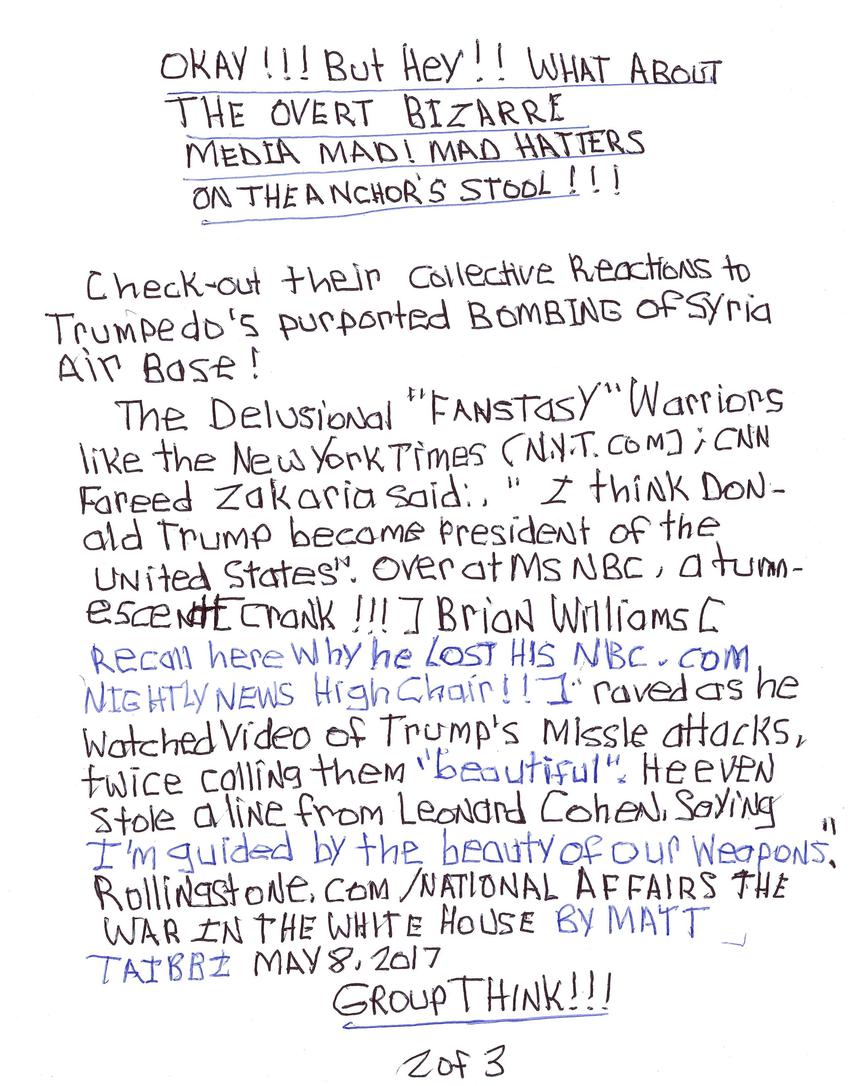 OKAY!!! But Hey!! WHAT ABOUT
THE OVERT BIZARRE
MEDIA MAD! MAD HATTERS
ON THE ANCHOR'S STOOL!!!
Check-out their Collective Reactions to
Trumpedo's purported BOMBING of Syria
Air Base!
The Delusional "FANSTASY" Warriors
like the New York Times (N.Y.T. COM]; CNN
Fareed Zakaria said:, " I think DON-
ald Trump became President of the
UNited States". Over at MSNBC, a tum-
escent [Cronk !!!] Brian Williams [
Recall here Why he LOST HIS NBC.COM
NIGHTLY NEWS High Chair!!]" raved as he
Watched Video of Trump's Missle attacks,
twice calling them "beautiful". He even
Stole a line from Leonard Cohen, Saying
I'm guided by the beauty of our Weapons."
Rollingstone.com/NATIONAL AFFAIRS THE
WAR IN THE WHITE HOUSE BY MATT
TAIBBI MAY 8, 2017
GROUP THINK!!!
2 of 3